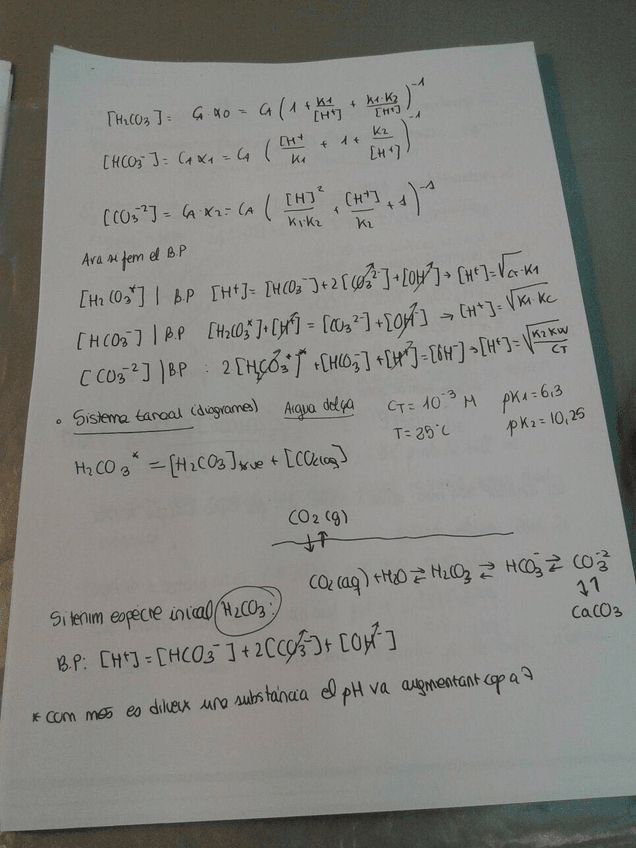 [H2CO3] = CT α0 = CT (1 + K1/[H+] + K1·K2/[H+])^-1
[HCO3-] = CT α1 = CT ([H+/K1 + 1 + K2/[H+])^-1
[CO3-2] = CT α2 = CT ([H]^2/K1·K2 + [H+]/K2 + 1)^-1
Ara si fem el B.P
[H2CO3*] | B.P [H+] = [HCO3-] + 2[CO3^2-] + [OH-] → [H+] = √CT·K1
[HCO3-] | B.P [H2CO3*] + [H+] = [CO3^2-] + [OH-] → [H+] = √K1·KC
[CO3-2] | BP : 2[H2CO3*]* + [HCO3-] + [H+] = [OH-] → [H+] = √K2KW/CT
• Sistema tancat (diagrames) Aigua dolça CT = 10^-3 M pK1 = 6,3
T = 25°C pK2 = 10,25
H2CO3* = [H2CO3]true + [CO2(aq)]
CO2 (g)
↓↑
CO2(aq) + H2O ⇄ H2CO3 ⇄ HCO3- ⇄ CO3-2
↓↑
CaCO3
Si tenim espècie inicial H2CO3:
B.P: [H+] = [HCO3-] + 2[CO3-] + [OH-]
* com més es dilueix una substància el pH va augmentant cap a 7